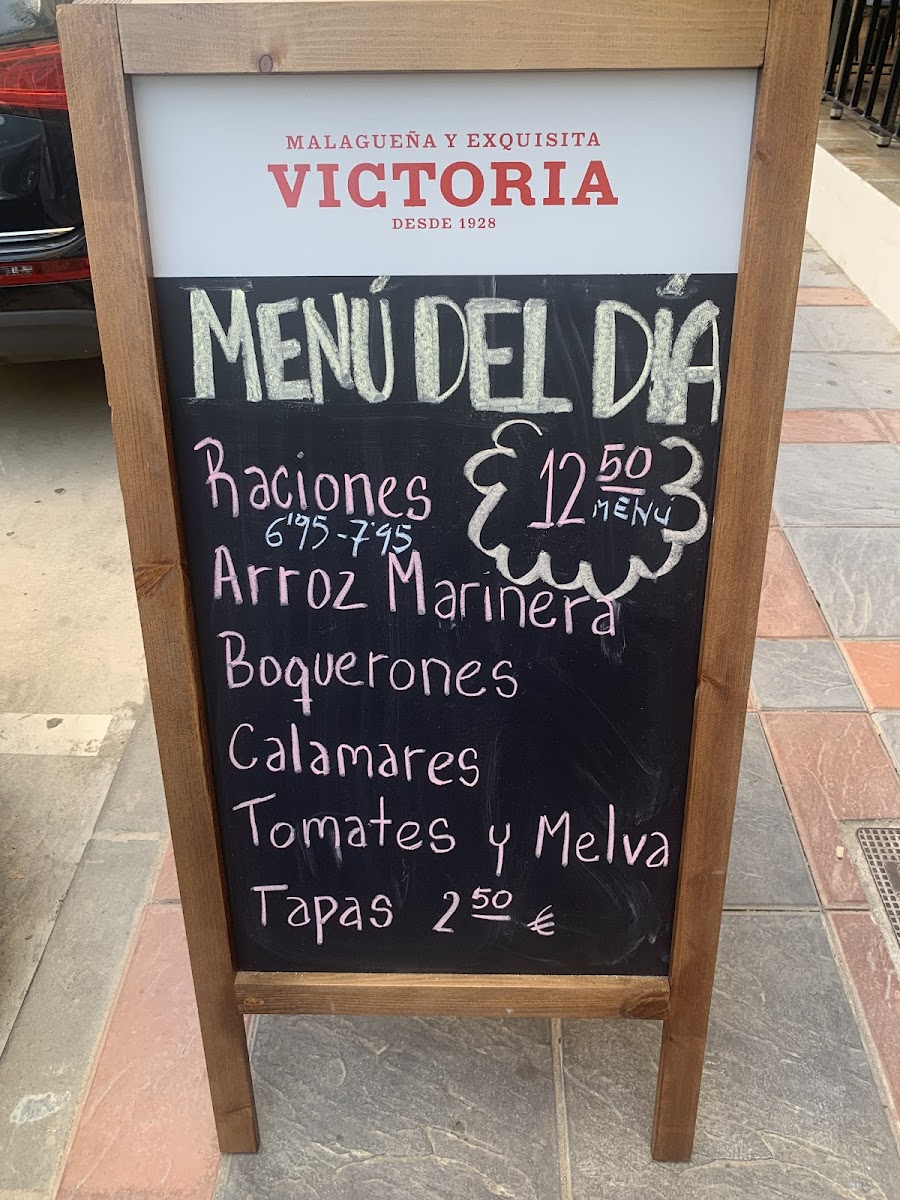 MALAGUEÑA Y EXQUISITA
VICTORIA
DESDE 1928
MENÚ DEL DÍA
Raciones
6'95-7'95
12 50
MENÚ
Arroz Marinera
Boquerones
Calamares
Tomates y Melva
Tapas 2 50 €